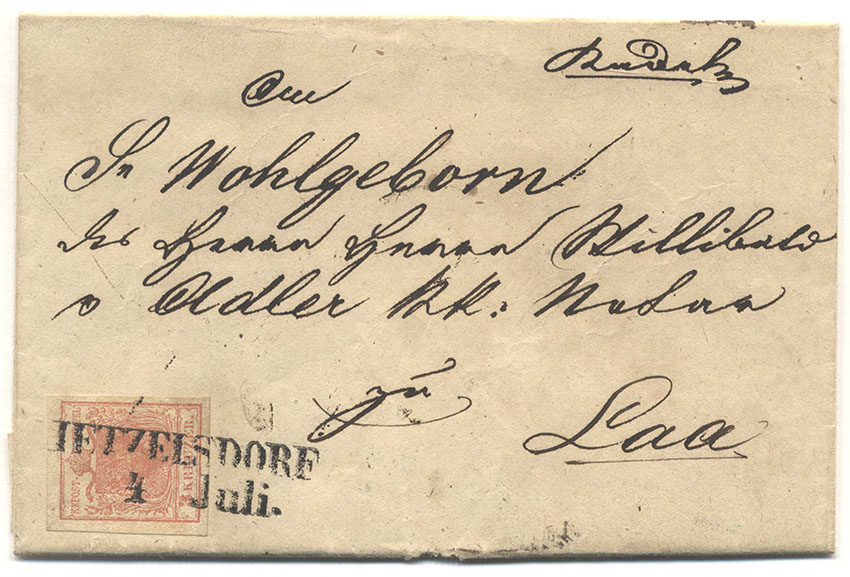 An
Sr Wohlgeborn
des Herrn Herrn Willibald
v Adler KK: Notar
zu
Laa
IETZELSDORF
4 Juli.